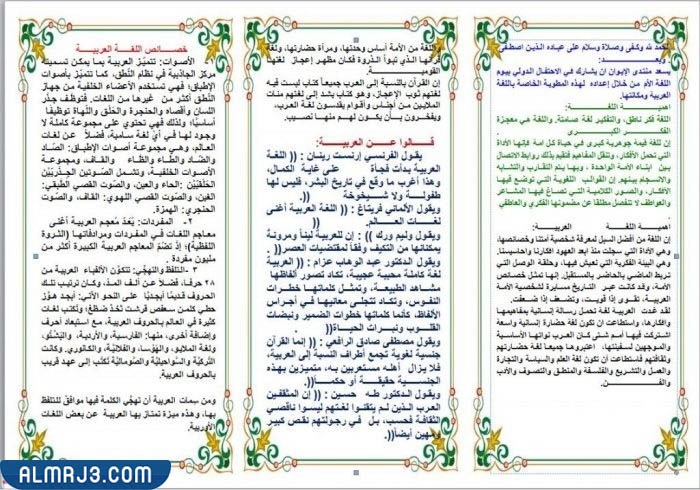 الحمد لله وكفى وصلاة وسلام على عباده الذين اصطفى
وبعـــد:
يسعد منتدى الإيوان ان يشارك في الاحتفال الدولي بيوم
اللغة الأم من خلال إعداده لهذه المطوية الخاصة باللغة
العربية ومكانتها.
اهميـة اللغـة:
اللغة فكر ناطق، والتفكير لغة صامتة. واللغة هي معجزة
الفكر الكبرى.
إن للغة قيمة جوهرية كبرى في حياة كل امة فإنها الأداة
التي تحمل الأفكار، وتنقل المفاهيم فتقيم بذلك روابط الاتصال
بين ابناء الأمة الواحدة، وبها يتم التقارب والتشابه
والانسجام بينهم. إن القوالب اللغوية التي توضع فيها
الأفكار، والصور الكلامية التي تصاغ فيها المشاعر
والعواطف لا تنفصل مطلقاً عن مضمونها الفكري والعاطفي
.
اهمية اللغـة العربيـــة:
إن اللغة من أفضل السبل لمعرفة شخصية امتنا وخصائصها،
وهي الأداة التي سجلت منذ ابعد العهود افكارنا واحاسيسنا.
وهي البيئة الفكرية التي نعيش فيها، وحلقة الوصل التي
تربط الماضي بالحاضر بالمستقبل. إنها تمثل خصائص
الأمة، وقد كانت عبر التاريخ مسايرة لشخصية الأمة
العربية، تقوى إذا قويت، وتضعف إذا ضعفت.
لقد غدت العربية لغة تحمل رسالة إنسانية بمفاهيمها
وافكارها، واستطاعت ان تكون لغة حضارة إنسانية واسعة
اشتركت فيها امم شتى كان العرب نواتها الأساسية
والموجهين لسفينتها، اعتبروها جميعاً لغة حضارتهم
وثقافتهم فاستطاعت أن تكون لغة العلم والسياسة والتجارة
والعمل والتشريع والفلسفة والمنطق والتصوف والأدب
والفن.
واللغة من الأمة أساس وحدتها، ومرآة حضارتها، ولغة
قرآنها الذي تبوأ الذروة فكان مظهر إعجاز لغتها
القومية.
إن القرآن بالنسبة إلى العرب جميعاً كتاب لبست فيه
لغتهم ثوب الإعجاز، وهو كتاب يشد إلى لغتهم مئات
الملايين من أجناس وأقوام يقدسون لغة العرب،
ويفخرون بأن يكون لهم منها نصيب.
قـالوا عـن العربيـة:
يقول الفرنسي إرنست رينان: (( اللغة
العربية بدأت فجأة على غاية الكمال،
وهذا أغرب ما وقع في تاريخ البشر، فليس لها
طفولـة ولا شيخوخة )).
ويقول الألماني فريتاغ: (( اللغة العربية أغنى
لغـات العالـم )).
ويقول وليم ورك: (( إن للعربية ليناً ومرونة
يمكنانها من التكيف وفقاً لمقتضيات العصر)).
ويقول الدكتور عبد الوهاب عزام: (( العربية
لغة كاملة محببة عجيبة، تكاد تصور ألفاظها
مشاهد الطبيعة، وتمثل كلماتها خطرات
النفوس، وتكاد تتجلى معانيها في أجراس
الألفاظ، كأنما كلماتها خطوات الضمير ونبضات
القلـوب ونبرات الحيـاة)).
ويقول مصطفى صادق الرافعي: (( إنما القرآن
جنسية لغوية تجمع أطراف النسبة إلى العربية،
فلا يزال أهله مستعربين به، متميزين بهذه
الجنسية حقيقة أو حكماً)).
ويقول الدكتور طه حسين: (( إن المثقفين
العرب الذين لم يتقنوا لغتهم ليسوا ناقصي
الثقافة فحسب، بل في رجولتهم نقص كبير
ومهين أيضاً)).
خصـائص اللغـة العربيـة
١- الأصوات: تتميّز العربية بما يمكن تسميته
مركز الجاذبية في نظام النُّطق، كما تتميّز بأصوات
الإطباق؛ فهي تستخدم الأعضاء الخلفية من جهاز
النُّطق أكثر من غيرها من اللغات، فتوظِّف جذر
اللسان وأقصاه والحنجرة والحَلْق واللَّهاة توظيفًا
أساسيًّا؛ ولذلك فهي تحتوي على مجموعة كاملة لا
وجود لها في أيّ لغة سامية، فضلاً عن لغات
العالم، وهي مجموعة أصوات الإطباق: الصّاد
والضّاد والطّاء والظّاء والقاف، ومجموعة
الأصوات الخلفية، وتشمل الصوتين الجِذْريّيْن
الحَلْقِيَّيْن: الحاء والعين، والصوت القصي الطبقي:
الغين، والصوت القصي اللهوي: القاف، والصوت
الحنجري: الهمزة.
٢- المفردات: يُعدّ مُعجم العربية أغنى
معاجم اللغات في المفردات ومرادفاتها (الثروة
اللفظية)؛ إذ تضُمّ المعاجم العربية الكبيرة أكثر من
مليون مفردة.
٣- التلفُّظ والتهجِّي: تتكوّن الألفباء العربية من
٢٨ حرفًا، فضلاً عن ألف المدّ. وكان ترتيب تلك
الحروف قديمًا أبجديًّا على النحو الآتي: أبجد هوّز
حطي كلمن سعفص قرشت ثخذ ضظغ؛ وتُكتب لغات
كثيرة في العالم بالحروف العربية، مع استبعاد أحرف
وإضافة أخرى، منها: الفارسية، والأردية، والبَشْتو،
ولغة الملايو، والهَوْسا، والفُلانيّة، والكانوري. وكانت
التركية والسَّواحيلية والصُّومالية تُكتب إلى عهد قريب
بالحروف العربية.
ومن سمات العربية أن تهجِّي الكلمة فيها موافقٌ للتلفظ
بها، وهذه ميزة تمتاز بها العربية عن بعض اللغات
الأوربية.
ALMRJ3.COM